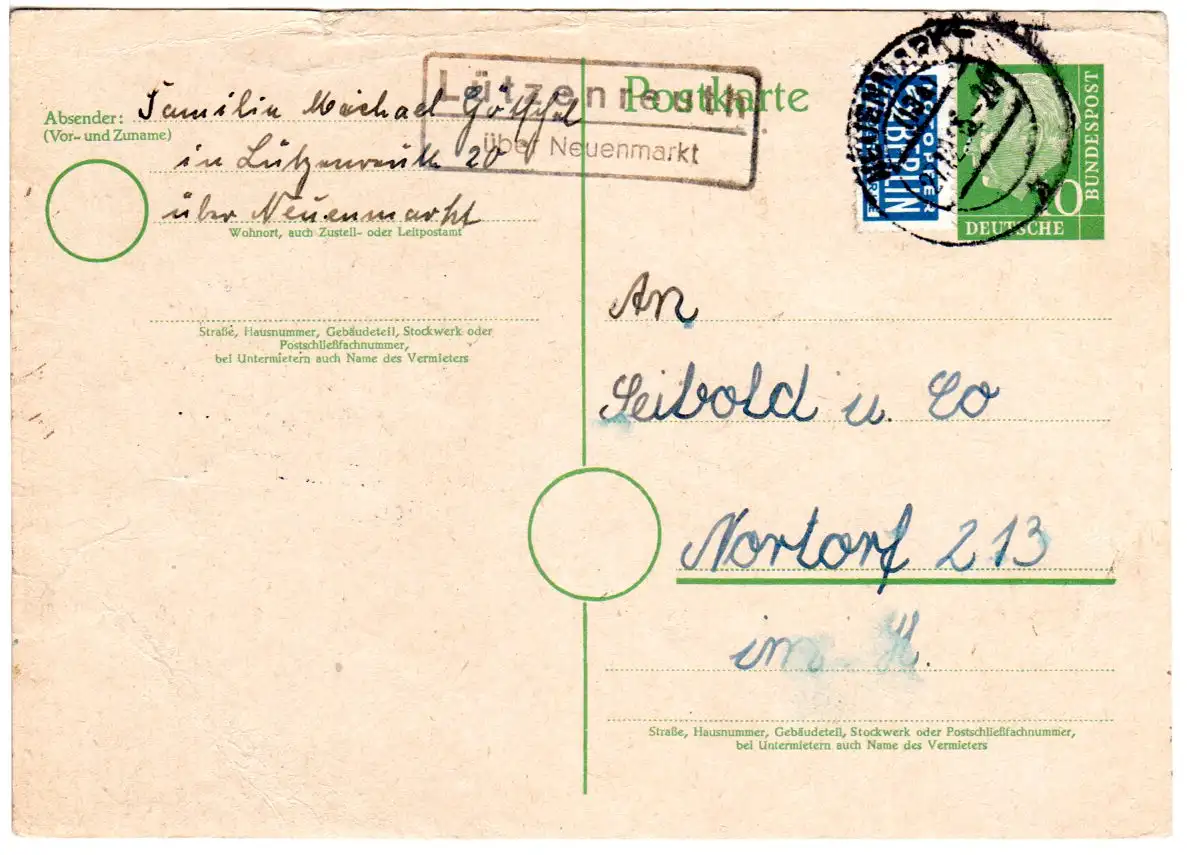 Postkarte
Lützenreuth
über Neuenmarkt
Absender: Familie Michael
(Vor- und Zuname)
in Lützenreuth 20
über Neuenmarkt
Wohnort, auch Zustell- oder Leitpostamt
Straße, Hausnummer, Gebäudeteil, Stockwerk oder
Postschließfachnummer,
bei Untermietern auch Name des Vermieters
NEUENMARKT
NOTOPFER
BERLIN
10
BUNDESPOST
DEUTSCHE
An
Seibold u. Co
Nortorf 213
im H.
Straße, Hausnummer, Gebäudeteil, Stockwerk oder Postschließfachnummer,
bei Untermietern auch Name des Vermieters